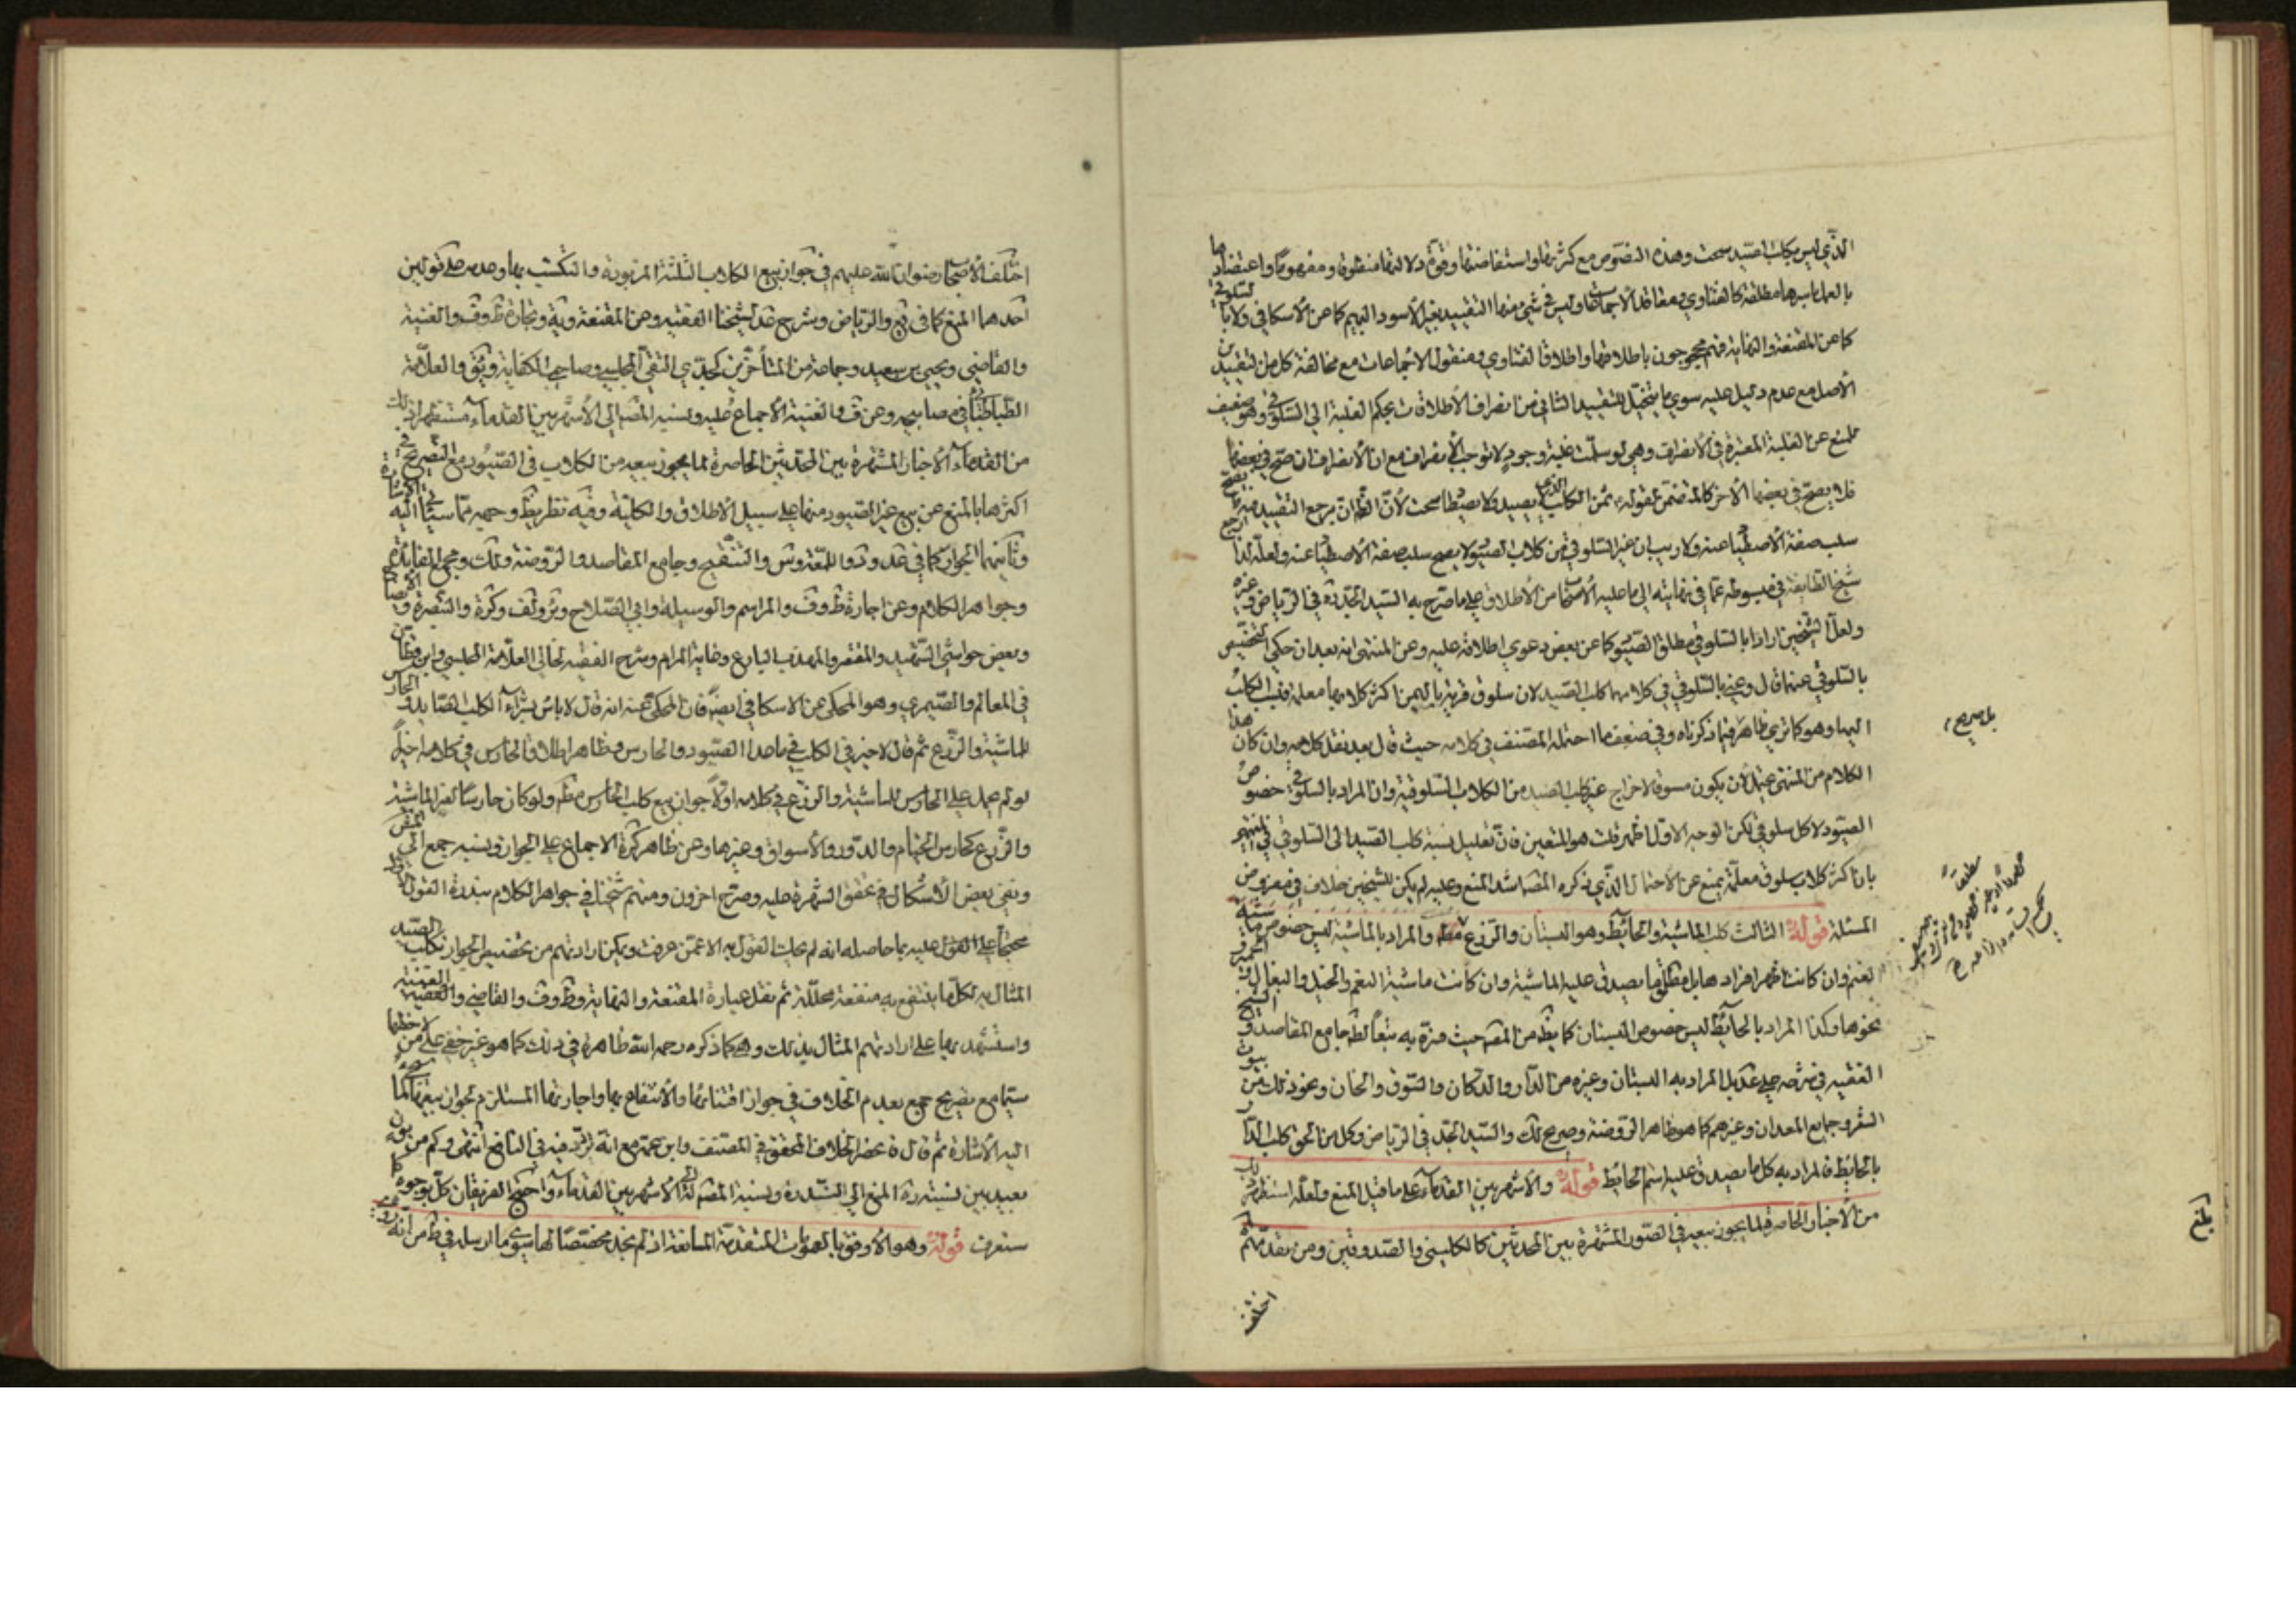 الذي ليس بكلب الصيد سحت وهذه النصوص مع كثرتها واستفاضتها وقوة دلالتها منطوقا ومفهوما واعتضادها
بالعمل باسرها مطلقة كالفتاوى ومعاقد الاجماعات وليس في شيء منها التقييد بغير الاسود البهيم كما عن الاسكافي ولا بالسلوقي
كما عن المقنعة والنهاية فهم محجوجون باطلاقها واطلاق الفتاوى ومنقول الاجماعات مع مخالفة كل من التقييدين
الأصل مع عدم دليل عليه سوى ما يتخيل للتقييد الثاني من انصراف الأطلاقات بحكم الغلبة الى السلوقي وهو ضعيف
لمنع عن الغلبة المعتبرة في الأنصراف وهي لو سلمت غلبة وجود لا توجب الأنصراف مع ان الأنصراف ان صح في بعضها
فلا يصح في بعضها الاخر كالمتضمن لقوله ثمن الكلب الذي يصيد ولا يصطاد سحت لأن الظ ان مرجع التقييد
سلب صفة الأصطياد عنه ولا ريب ان غير السلوقي من كلاب الصيود لا يصح سلب صفة الأصطياد عنه ولعله لذا
شيخ الطايفة في مبسوطه عما في نهايته الى ما عليه الأصحاب من الأطلاق على ما صرح به السيد الجد ره في الرياض وغيره
ولعل الشيخين ارادا بالسلوقي مطلق الصيود كما عن بعض دعوى اطلاقه عليه وعن المنتهى انه بعد ان حكى التخصيص
بالسلوقي عنهما قال وعنى بالسلوقي في كلامهما كلب الصيد لان سلوق قرية باليمن اكثر كلابها معلمة فنسب الكلب
اليها وهو كما ترى ظاهر فيما ذكرناه وفي ضعف ما احتمله المصنف في كلامه حيث قال بعد نقل كلامه وان كان هذا
الكلام من المنتهى يحتمل لأن يكون مسوقا لاخراج غير كلب الصيد من الكلاب السلوقية وان المراد بالسلوقي خصوص
الصيود لا كل سلوقي لكن الوجه الاول اظهر قلت هو المتعين فان تعليل نسبة كلب الصيد الى السلوقي في المنتهى
بان اكثر كلاب سلوق معلمة يمنع عن الاحتمال الذي ذكره المص اشد المنع وعليه لم يكن للشيخين خلاف في مفروض
المسئلة قوله الثالث كلب الماشية والحائط وهو البستان والزرع والمراد بالماشية ليس خصوص ماشية
الغنم وان كانت اظهر افرادها بل مطلق ما يصدق عليه الماشية وان كانت ماشية البقر والخيل والبغال
نحوها وكذا المراد بالحائط ليس خصوص البستان كما يظهر من المص حيث فسره به تبعا لظ جامع المقاصد و
الفقيه في شرحه على عد بل المراد به البستان وغيره من الدار والدكان والسوق والخان ونحو ذلك من بيوت
السفر وجامع المعدان وغيرهم كما هو ظاهر الروضة وصريح لك والسيد الجد في الرياض وكل من الحق كلب الدار
بالحائط فالمراد به كل ما يصدق عليه اسم الحائط قوله والاشهر بين القدماء على ما قيل المنع ولعله استظهر ذلك
من الأخبار الحاصرة لما يجوز بيعه في الصور المشتهرة بين المحدثين كالكليني والصدوقين ومن تقدمهم
اختلف
بل صريح
اختلف الأصحاب رضوان الله عليهم في جواز بيع الكلاب الثلثة المزبورة والتكسب بها وعدمه على قولين
احدهما المنع كما في يع والرياض وشرح عد لشيخنا الفقيه وعن المقنعة وية وتجارة ظ وف والغنية
والقاضي ويحيى بن سعيد وجماعة من المتأخرين كجدي التقي المجلسي وصاحب الكفاية ويق والعلامة
الطباطبائي في مصابيحه وعن ف والغنية الاجماع عليه ونسبه المص الى الأشهر بين القدماء مستظهرا ذلك
من القدماء الأخبار المشتهرة بين المحدثين الحاصرة لما يجوز بيعه من الكلاب في الصيود مع التصريح في
اكثرها بالمنع عن بيع غير الصيود منها على سبيل الأطلاق والكلية وفيه نظر يظ وجهه مما سيأتي اليه الاشارة
وثانيهما الجواز كما في عد ود واللمعة وس والتنقيح وجامع المقاصد والروضة ولك ومجمع الفايدة
وجواهر الكلام وعن اجارة ظ وف والمراسم والوسيلة وابي الصلاح وير ولف وكرة والتبصرة والايضاح
وبعض حواشي الشهيد والمقتصر والمهذب البارع وغاية المرام وشرح الفقيه لخالي العلامة المجلسي وابن قطان
في المعالم والصيمري وهو المحكي عن الاسكافي ايضا فان المحكي عنه انه قال لا باس بشراء الكلب الصايد والحارس
للماشية والزرع ثم قال لا خير في الكلب فيما عدا الصيود والحارس وظاهر اطلاق الحارس في كلامه اخيرا
لو لم يحمل على الحارس للماشية والزرع في كلامه اولا جواز بيع كلب الحارس مط ولو كان حارسا لغير الماشية
والزرع كحارس الخيام والدور والأسواق وغيرها وعن ظاهر كرة الاجماع على الجواز ونسبه جمع الى
ونفى بعض الأشكال في تحقق الشهرة عليه وصرح اخرون ومنهم شيخنا في جواهر الكلام بندرة القول الأول
محتجا على القول عليه بما حاصله انه لم يحك القول به الا عمن عرفت ويمكن ارادتهم من تخصيص الجواز بكلب الصيد
المثال به لكل ما ينتفع به منفعة محللة ثم نقل عبارة المقنعة والنهاية وظ وف والقاضي والغنية
واستشهد بها على ارادتهم المثال بذلك وهي كما ذكره رحمه الله ظاهرة في ذلك كما هو غير خفي على من لاحظها
سيما مع تصريح جمع بعدم الخلاف في جواز اقتنائها والأنتفاع بها واجارتها المستلزم لجواز بيعها لما
اليه الأشارة ثم قال فانحصر الخلاف في المحقق في المصنف وابن عمه مع انه تردد فيه في النافع انتهى وكم من بون
بعيد بين نسبته ره المنع الى الشذرة ونسبة المص له الى الأشهر بين القدماء واحتج الفريقان كل بوجوه
ستعرف قوله وهو الأوفق بالعمومات المتقدمة المانعة اذ لم نجد مخصصا لها سوى ما ارسله في ط من انه